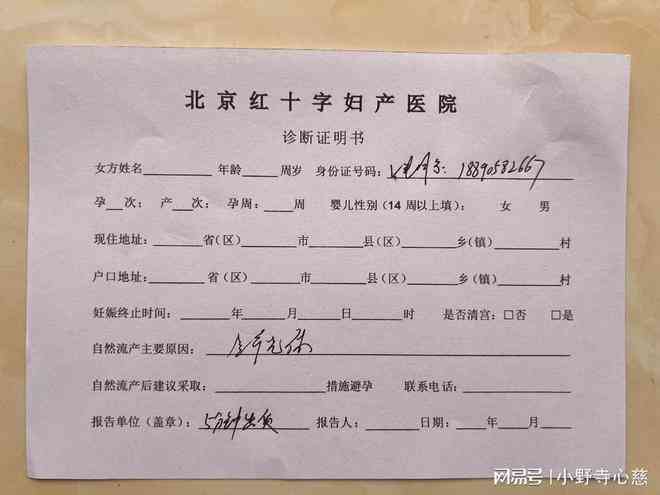 北京红十字妇产医院
诊断证明书
女方姓名________ 年龄____周岁 身份证号码：18890582667
孕__次； 产__次； 孕周：____周 婴儿性别（14周以上填）： 女 男
现住地址：______省（区）______市______县（区）______乡（镇）______村
户口地址：______省（区）______市______县（区）______乡（镇）______村
妊娠终止时间：______年______月______日______时 是否清宫：□否 □是
自然流产主要原因：
自然流产后建议采取：____________措施避孕 联系电话：____________
报告单位（盖章）：5分钟出货 报告人：______日期：____年____月____
网易号 | 小野寺心慈